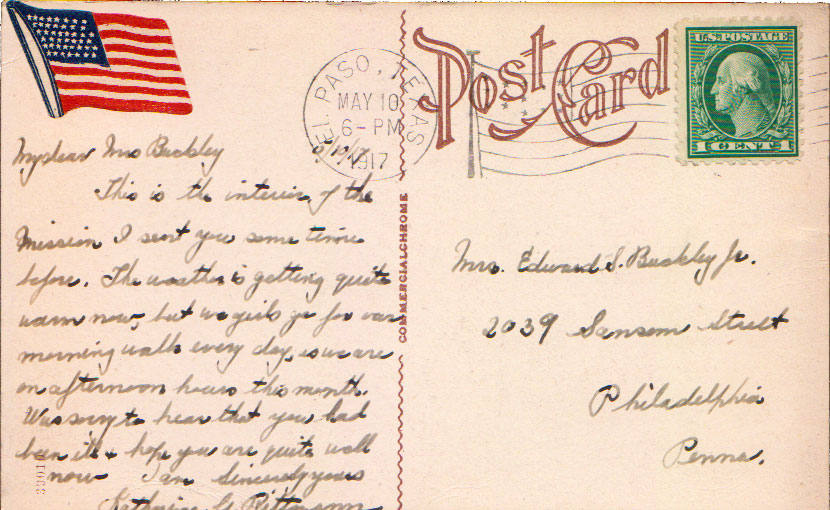 EL PASO, TEXAS
MAY 10
6-PM
1917
Post Card
U.S. POSTAGE
1 CENT 1
5/10/17
My dear Mrs Buckley
This is the interior of the
Mission I sent you some time
before. The weather is getting quite
warm now, but we girls go for our
morning walk every day, as we are
on afternoon hours this month.
Was sorry to hear that you had
been ill & hope you are quite well
now I am Sincerely yours
Katharine G.
COMMERCIALCHROME
Mrs. Edward S. Buckley Jr.
2039 Sansom Street
Philadelphia
Penna.